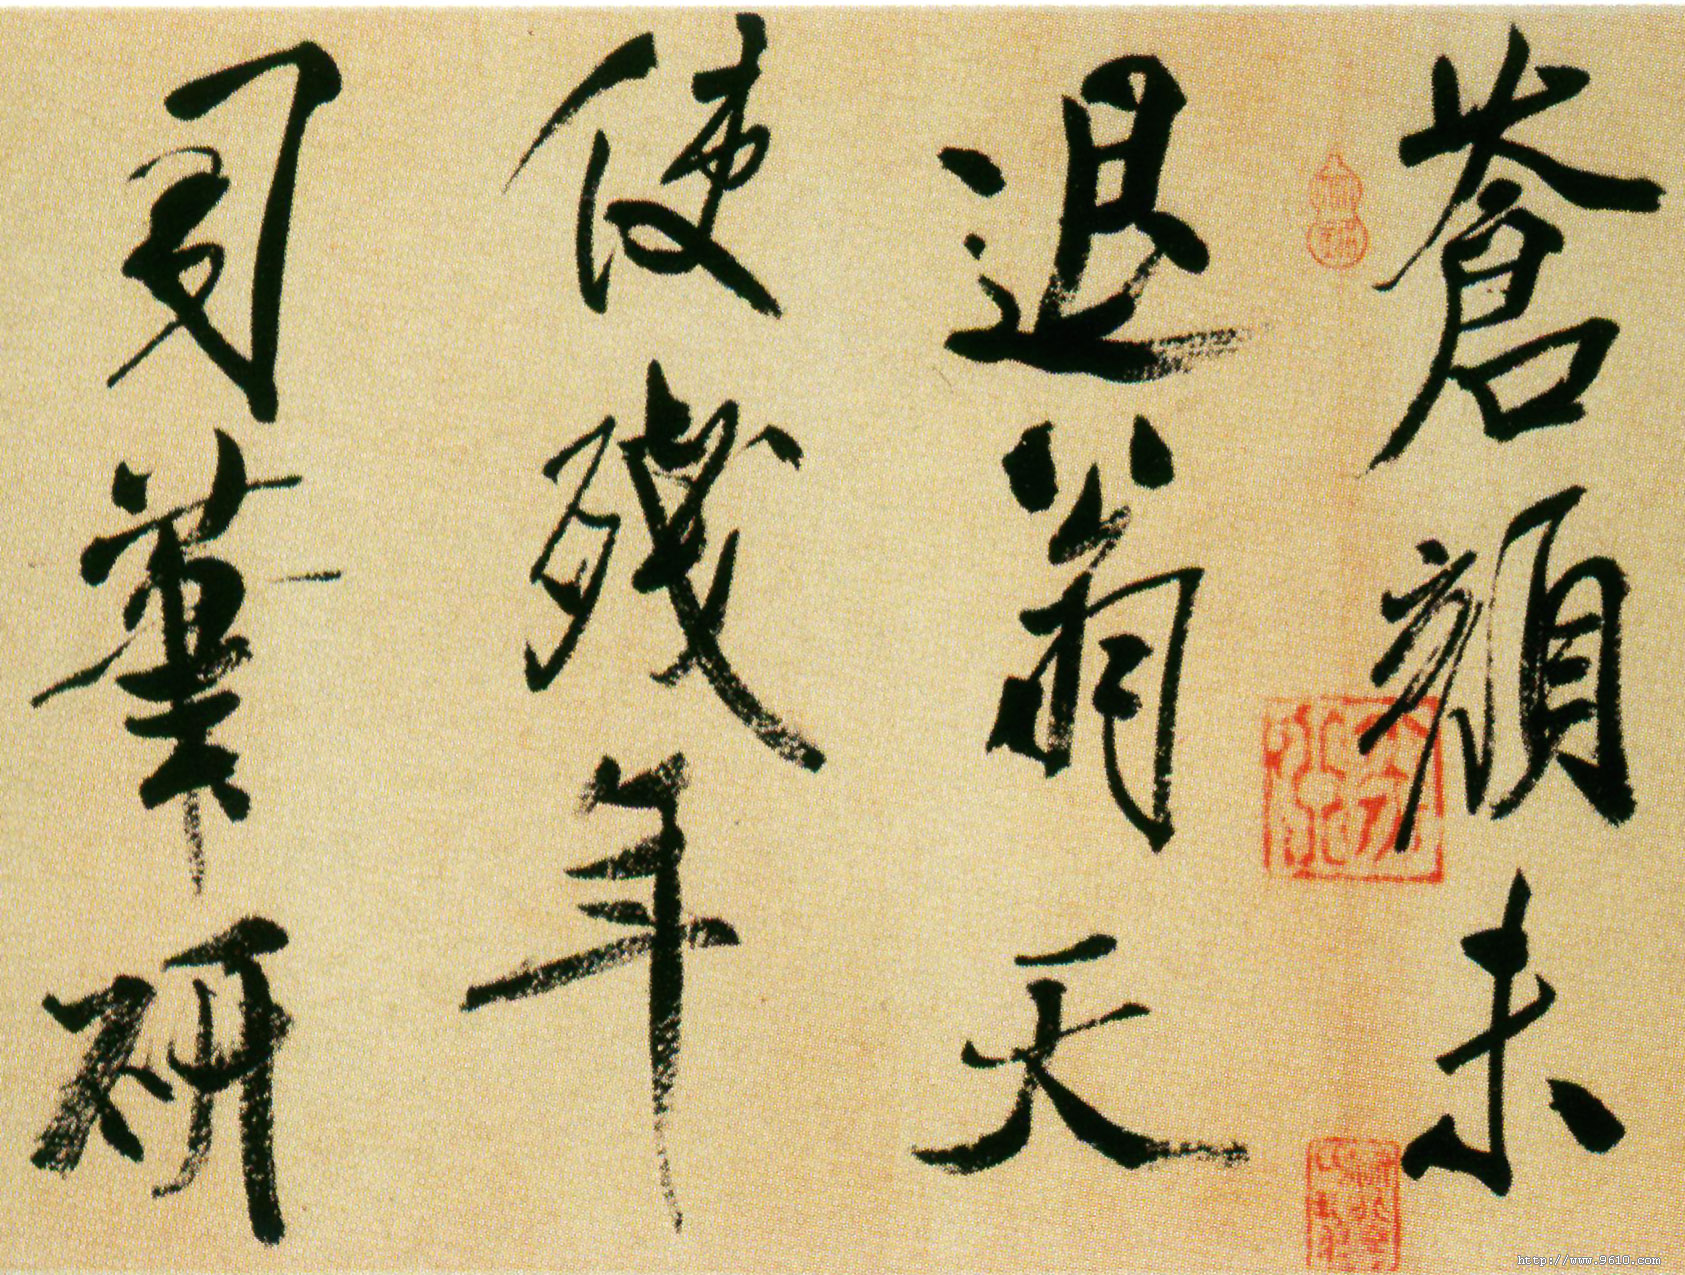 蒼顏未
退翁天
使殘年
司筆研
http://www.9610.com